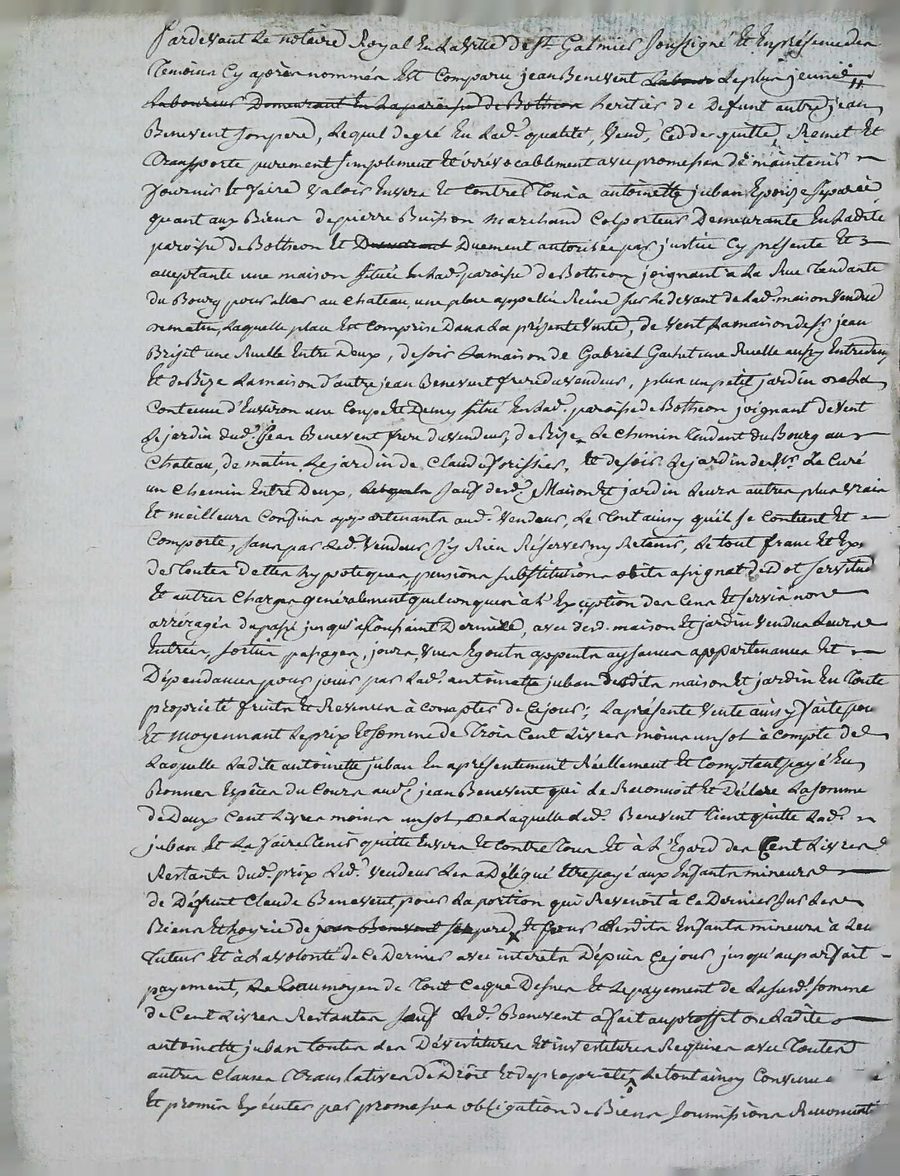 Pardevant Le notaire Royal En La Ville de St. Galmier Soussigné Et En présence des
Temoins Cy après nommés Est Comparu jean Benevent Labour Le plus jeune
Laboureur Demeurant En La paroisse de Botheon heritier de Defunt autre jean
Benevent son pere, Lequel de gré En Lad.e qualité, Vend, Cedde quitte, Remet Et
Transporte purement simplement Et irrévocablement avec promesse de maintenir
fournir Et faire Valoir Envers Et Contre Tous à antoinette juban Epouse Séparée
quant aux Biens de pierre Buisson marchand Colporteur Demeurante En Ladite
paroisse de Botheon Et Demeurant Duement autorisée par justice Cy présente Et
acceptante une maison située En Lad.e paroisse de Botheon joignant à La Rue Tendante
du Bourg pour aller au chateau, une place appellée Reine sur Le devant de Lad.e maison Vendue
de matin, Laquelle place Est Comprise Dans La présente Vente, de Vent La maison de Sr. jean
une Ruelle Entre Deux, de soir La maison de Gabriel Gachet une Ruelle aussy Entredeux
Et de Bize La maison d'autre jean Benevent frere du vendeur, plus un petit jardin de La
Contenue d'Environ une Coupe Et Demy situé En Lad.e paroisse de Botheon joignant de Vent
Le jardin dud. jean Benevent frere du vendeur, de Bize Le Chemin Tendant du Bourg au
Chateau, de matin Le jardin de Claude forissier, Et de soir Le jardin de Mr. Le Curé
un Chemin Entre Deux, Lesquels Sauf desd. Maison Et jardin Leurs autres plus Vrais
Et meilleurs Confins appartenants aud. Vendeur, Le Tout ainsy qu'il se Contient Et
Comporte, sans par Led. Vendeur s'y Rien Réserver ny Retenir, Le tout franc Et
de Toutes dettes hypoteques, pensions substitutions assignat de Dot servitude
Et autres Charges généralement quelconques à L'Exception des Cens Et servis non
arréragés du passé jusqu'à Toussaint Derniere, avec desd. maison Et jardin Vendus Leurs
Entrées, sorties passages, jours, Vues Egouts appents aysances appartenances Et
Dépendances pour jouir par Lad.e antoinette juban desdits maison Et jardin En Toute
proprieté fruits Et Revenus à Compter de Ce jour; La présente Vente ainsy faite pour
Et moyennant Le prix Et somme de Trois Cent Livres moins un sol à compte de
Laquelle Ladite antoinette juban En a présentement Réellement Et Comptant payé En
Bonnes Espèces du Cours aud. jean Benevent qui Le Reconnoit Et Déclare La somme
de Deux Cent Livres moins un sol, De Laquelle Led. Benevent Tient quitte Lad.e
juban Et La faire Tenir quitte Envers Et Contre Tous Et à L'Egard des Cent Livres
Restants dud. prix Led. Vendeur Les a Délégué Et payé aux Enfants mineurs
de Défunt Claude Benevent, pour La portion qui Revenoit à Ce Dernier sur Les
Biens Et hoyrie de jean Benevent son pere, Et pour Lesdits Enfants mineurs à Leur
Tuteur Et à La Volonté de Ce Dernier avec interets Dépuis Ce jour jusqu'au parfait
payement, Le Tout au moyen de Tout Ce que Dessus Et Le payement de La susd.e somme
de Cent Livres Restantes Sauf Led. Benevent a fait au proffit de Ladite
antoinette juban Toutes Les Dévestitures Et investitures Requises avec Toutes
autres Clauses Translatives de Droit Et de proprieté, Le tout ainsy Convenu
Et promis Exécuter par promesses obligation de Biens soumissions Renonciat